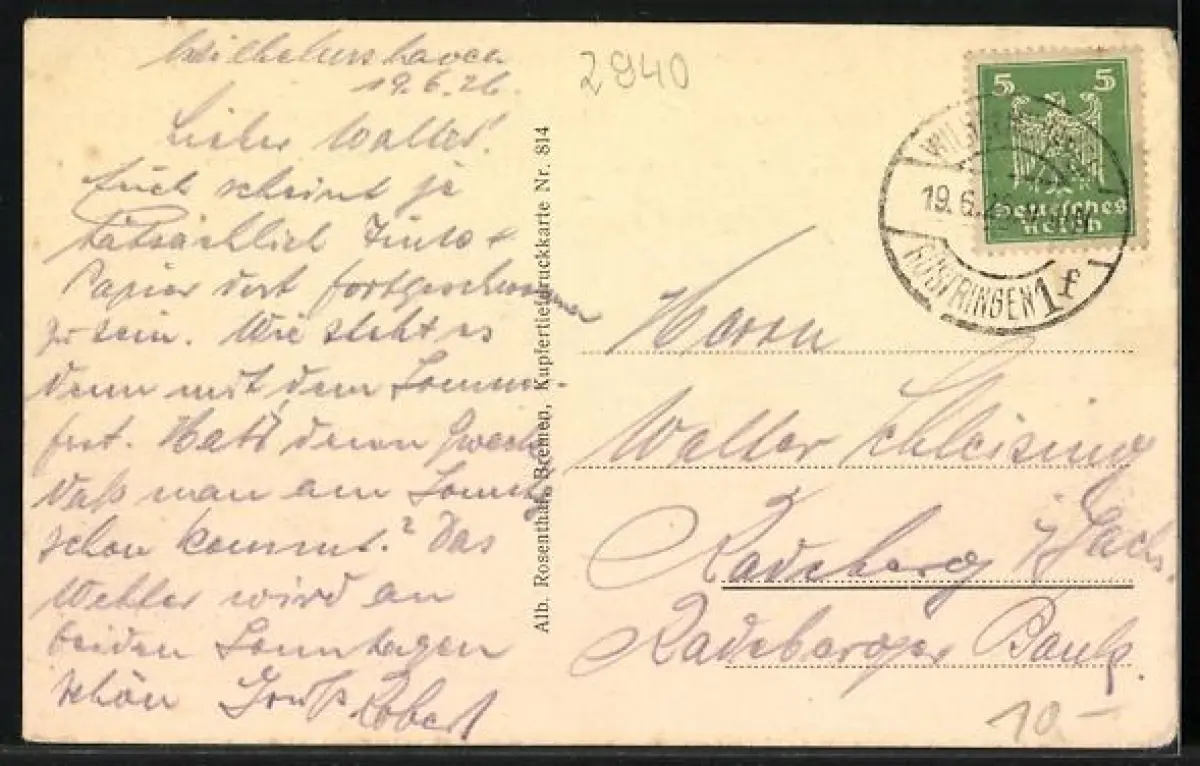 Wilhelmshaven
19.6.26.
Lieber Walter!
Euch scheint ja
tatsächlich Tinte +
Papier dort fortgeschwommen
zu sein. Wie steht es
denn mit dem Sommer-
fest. Hat's denn Zweck
daß man am Sonntg
schon kommt? Das
Wetter wird an
beiden Sonntagen
schön Gruß Robert
Alb. Rosenthal, Bremen, Kupfertiefdruckkarte Nr. 814
2940
5 5
Deutsches
Reich
19.6.
RÜSTRINGEN 1 f
Herrn
Walter Schleising
Radeberg i/Sachs.
Radeberger Bank.
10.-